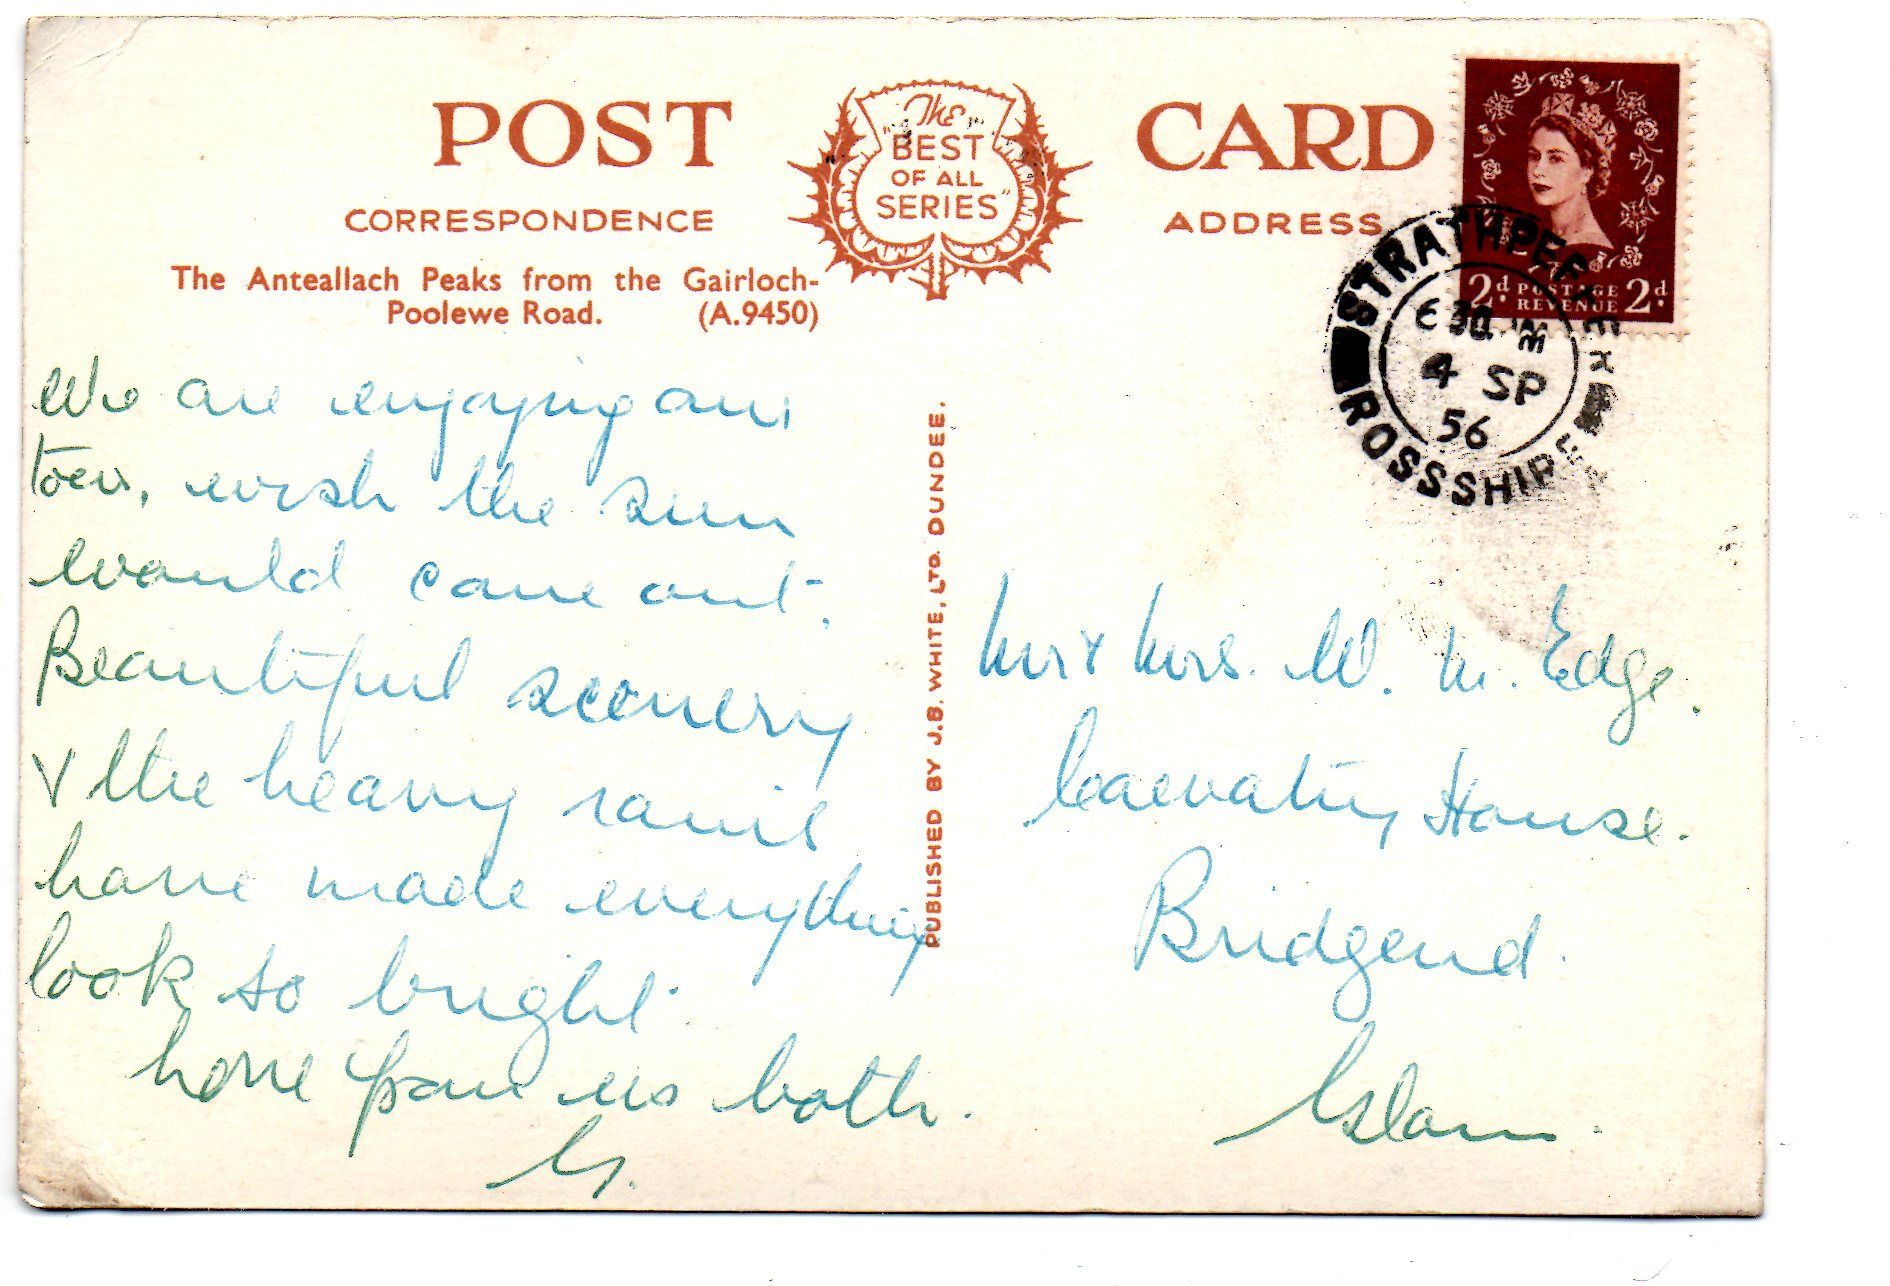 POST CARD
The
"BEST"
OF ALL
SERIES"
CORRESPONDENCE
ADDRESS
The Anteallach Peaks from the Gairloch-
Poolewe Road. (A.9450)
2d POSTAGE 2d
REVENUE
STRATHPEFFER
6 30 PM
4 SP
56
ROSSSHIRE
We are enjoying our
tour, wish the sun
would come out.
Beautiful scenery
& the heavy rains
have made everything
look so bright.
Love from us both.
G.
PUBLISHED BY J.B. WHITE, LTD. DUNDEE.
Mr & Mrs. W. M. Edge.
House.
Bridgend.